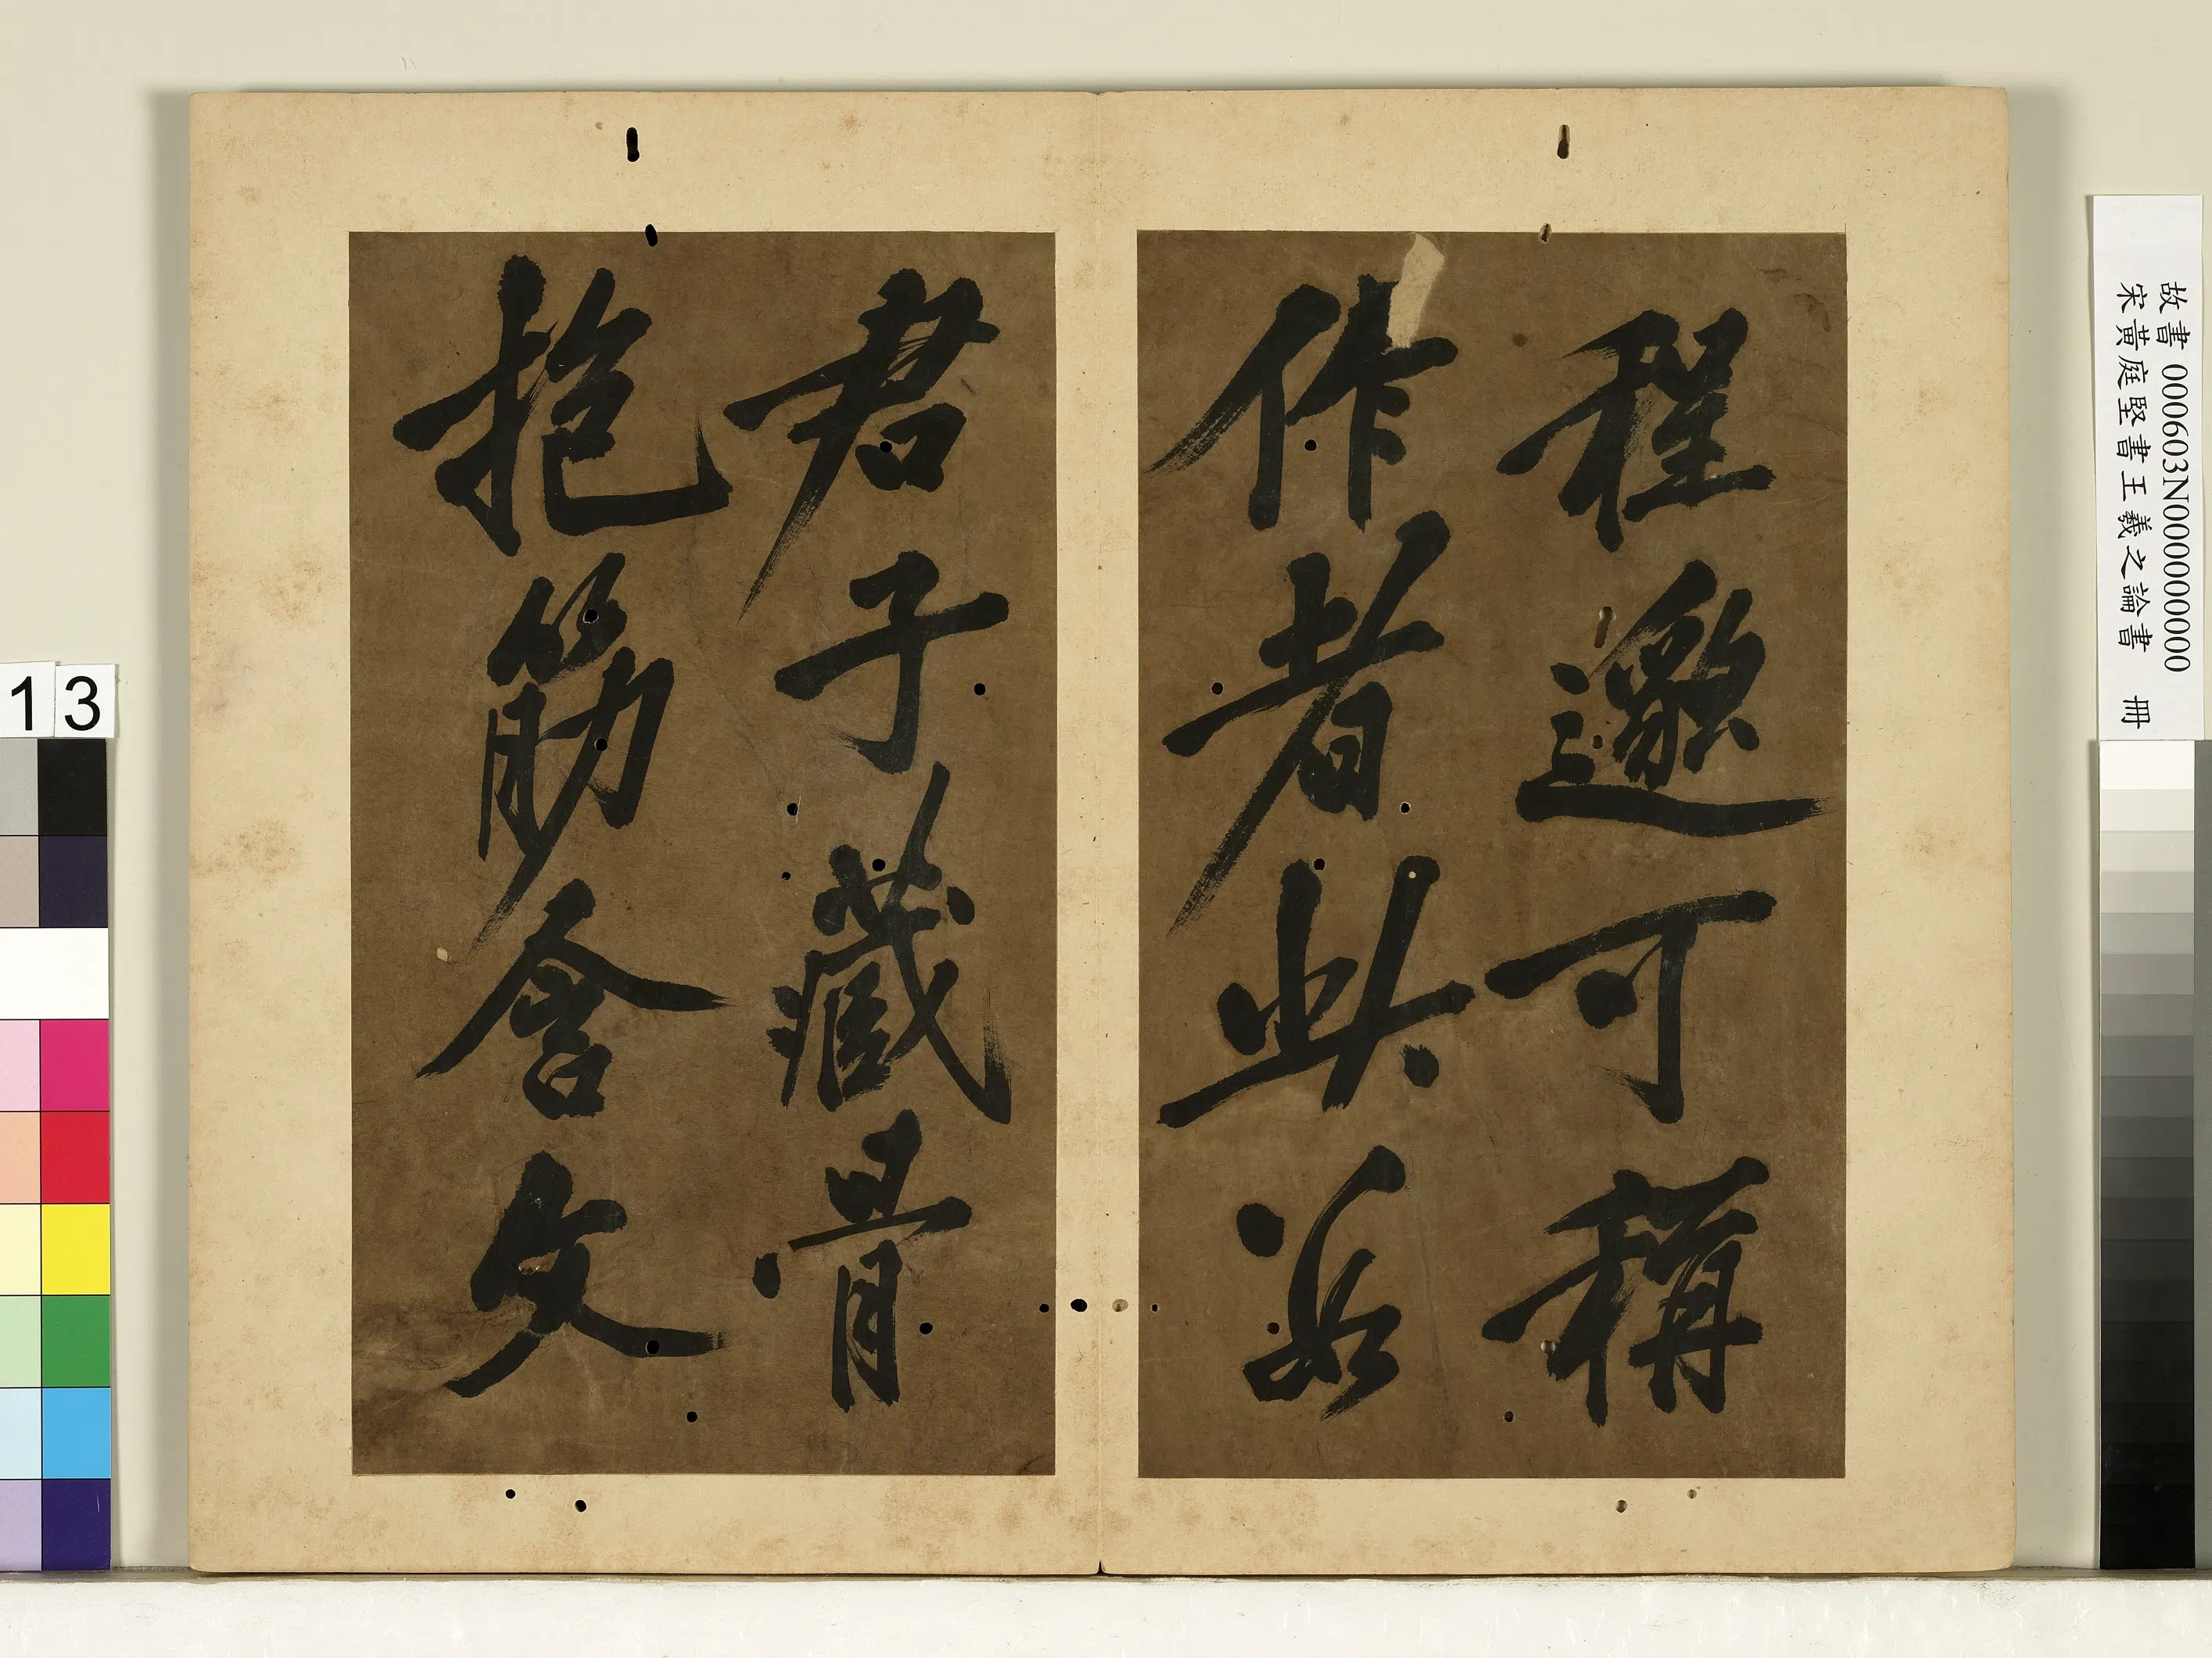 程邈可稱
作者
君子藏骨
抱筋含文
故書 000603N000000000
宋黃庭堅書王羲之論書 冊
13